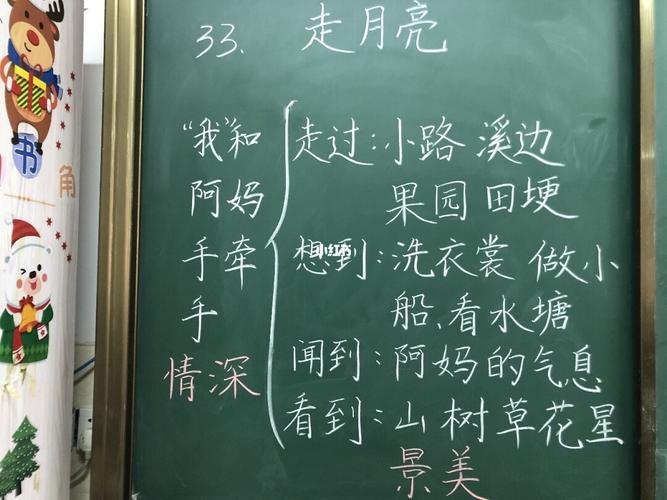 33. 走月亮
"我"和
阿妈
手牵
手
情深
走过：小路 溪边
果园 田埂
想到：洗衣裳 做小
船、看水塘
闻到：阿妈的气息
看到：山树草花星
景美
书
角
小红书